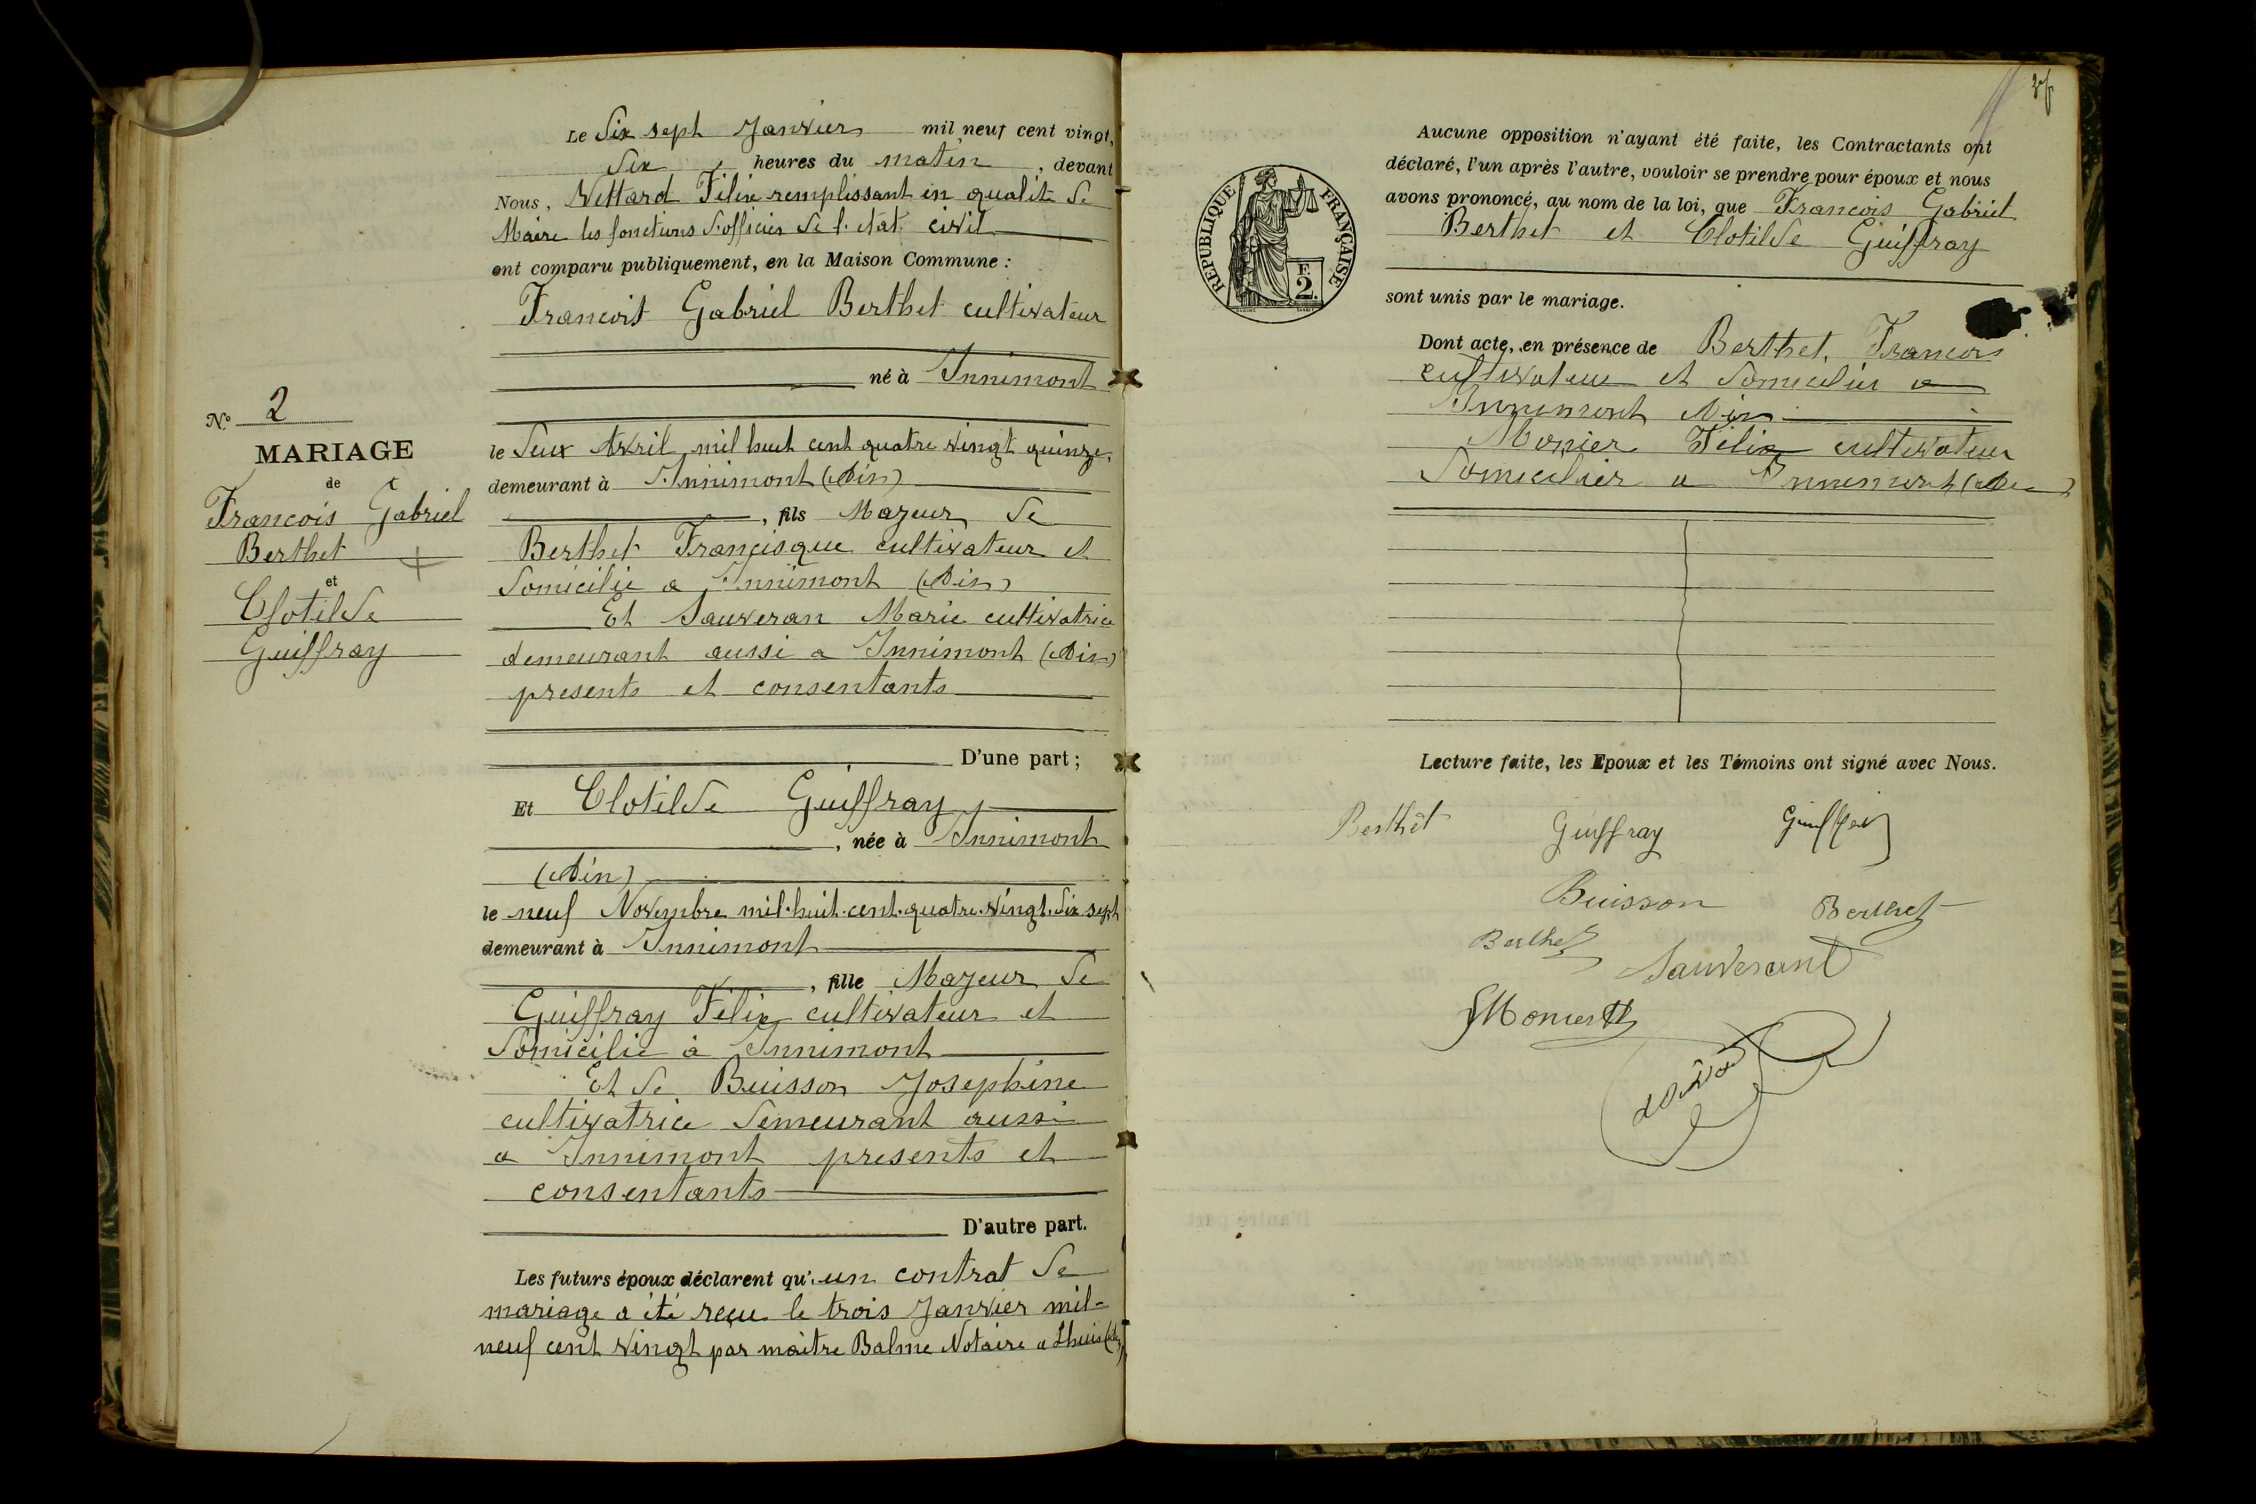 Le dix sept Janvier mil neuf cent vingt,
dix heures du matin, devant
Nous, Vettard Félix remplissant en qualité de
Maire les fonctions d'officier de l'état civil
ont comparu publiquement, en la Maison Commune :
Francois Gabriel Berthet cultivateur
né à Innimont
le deux Avril mil huit cent quatre vingt quinze,
demeurant à Innimont (Ain)
, fils Majeur de
Berthet Francisque cultivateur et
domicilié a Innimont (Ain)
Et Sauveran Marie cultivatrice
demeurant aussi a Innimont (Ain)
presents et consentants
D'une part ;
Et Clotilde Guiffray
, née à Innimont
(Ain)
le neuf Novembre mil.huit.cent.quatre.vingt.dix sept
demeurant à Innimont
, fille Majeur de
Guiffray Félix cultivateur et
domicilié à Innimont
Et de Buisson Josephine
cultivatrice demeurant aussi
a Innimont presents et
consentants
D'autre part.
Les futurs époux déclarent qu'un contrat de
mariage a été reçu le trois Janvier mil-
neuf cent vingt par maître Balme Notaire a Lhuis (Ain)
N° 2
MARIAGE
de
Francois Gabriel
Berthet
et
Clotilde
Guiffray
Aucune opposition n'ayant été faite, les Contractants ont
déclaré, l'un après l'autre, vouloir se prendre pour époux et nous
avons prononcé, au nom de la loi, que Francois Gabriel
Berthet et Clotilde Guiffray
sont unis par le mariage.
Dont acte, en présence de Berthet, Francois
cultivateur et domicilier a
Innimont Ain
Monier Félix cultivateur
domicilier a Innimont (Ain)
Lecture faite, les Epoux et les Témoins ont signé avec Nous.
Berthet Guiffray Guiffray
Buisson Berthet
Berthet Sauverant
Monier
REPUBLIQUE FRANÇAISE
F.
2